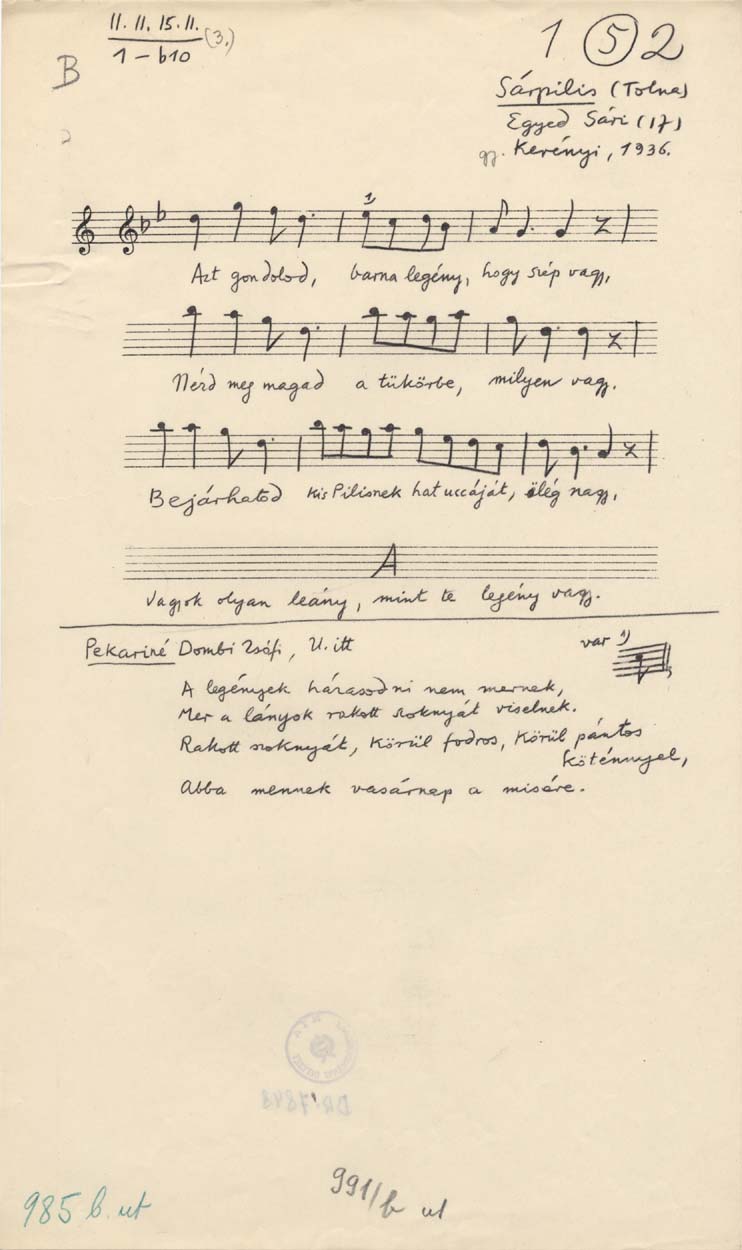 11. 11. 15. 11. (3.)
1 – b10
B
1 5 2
Sárpilis (Tolna)
Egyed Sári (17)
gy. Kerényi, 1936.
1)
Azt gondolod, barna legény, hogy szép vagy,
Nézd meg magad a tükörbe, milyen vagy.
Bejárhatod kis Pilisnek hat uccáját, elég nagy,
A
Vagyok olyan leány, mint te legény vagy.
Pekariné Dombi Zsófi, U. itt
var 1)
A legények házasodni nem mernek,
Mer a lányok rakott szoknyát viselnek.
Rakott szoknyát, körül fodros, körül pántos
köténnyel,
Abba mennek vasárnap a misére.
985 b. ut
991/b ut